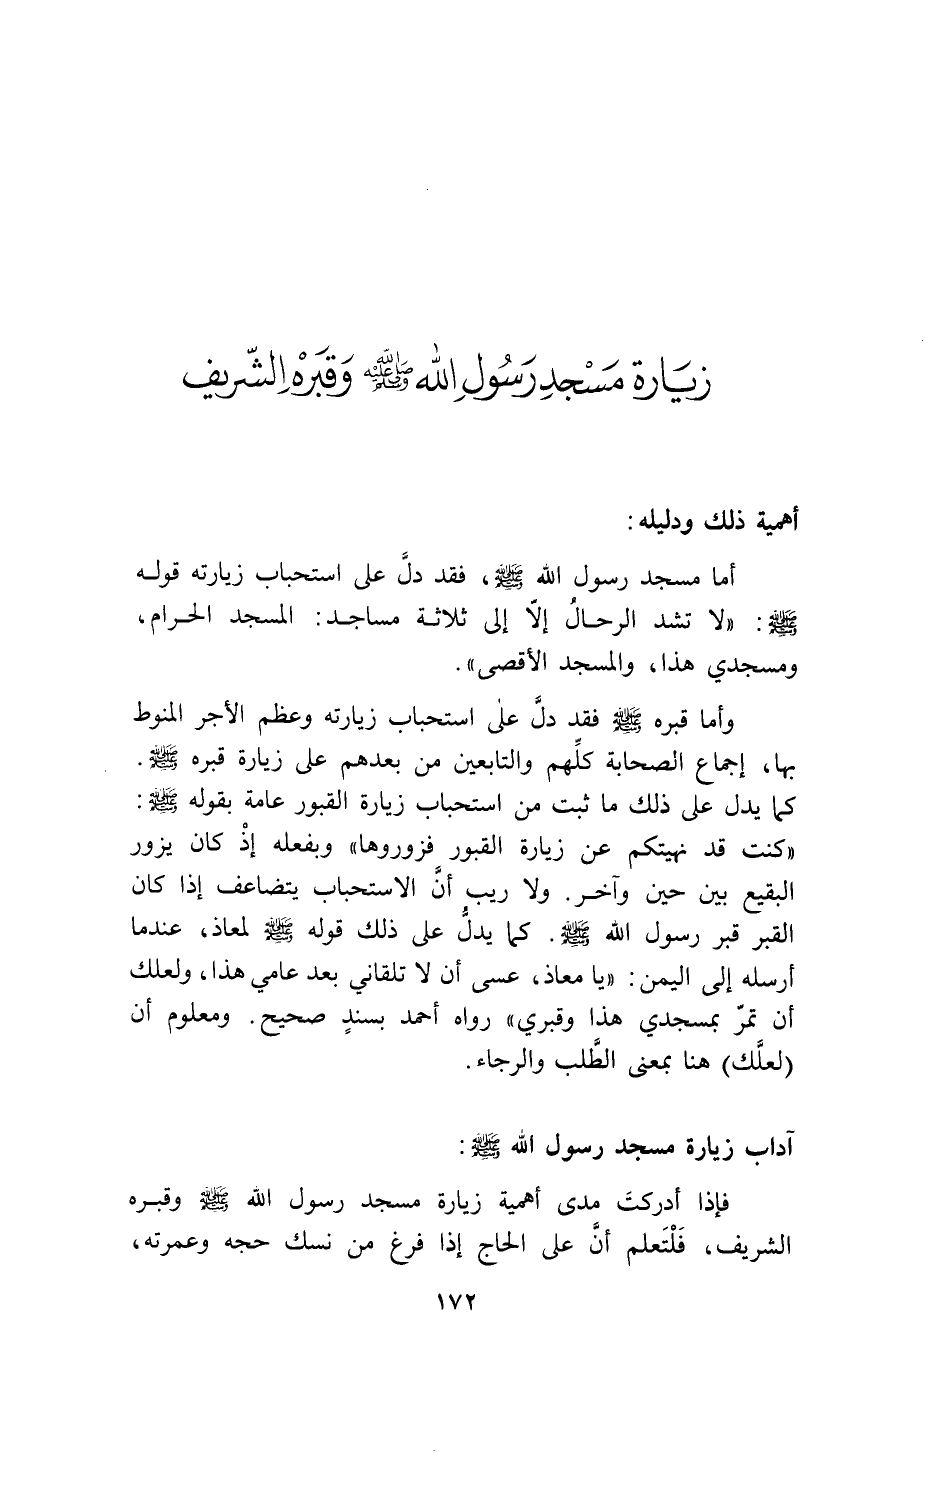 زيارة مسجد رسول الله ﷺ وقبره الشريف
أهمية ذلك ودليله :
أما مسجد رسول الله ﷺ ، فقد دلَّ على استحباب زيارته قوله
ﷺ : «لا تشد الرحالُ إلاّ إلى ثلاثة مساجد : المسجد الحرام ،
ومسجدي هذا ، والمسجد الأقصى» .
وأما قبره ﷺ فقد دلَّ على استحباب زيارته وعظم الأجر المنوط
بها ، إجماع الصحابة كلِّهم والتابعين من بعدهم على زيارة قبره ﷺ .
كما يدل على ذلك ما ثبت من استحباب زيارة القبور عامة بقوله ﷺ :
«كنت قد نهيتكم عن زيارة القبور فزوروها» وبفعله إذْ كان يزور
البقيع بين حين وآخر . ولا ريب أنَّ الاستحباب يتضاعف إذا كان
القبر قبر رسول الله ﷺ . كما يدلُّ على ذلك قوله ﷺ لمعاذ ، عندما
أرسله إلى اليمن : «يا معاذ ، عسى أن لا تلقاني بعد عامي هذا ، ولعلك
أن تمرّ بمسجدي هذا وقبري» رواه أحمد بسندٍ صحيح . ومعلوم أن
(لعلَّك) هنا بمعنى الطَّلب والرجاء .
آداب زيارة مسجد رسول الله ﷺ :
فإذا أدركتَ مدى أهمية زيارة مسجد رسول الله ﷺ وقبره
الشريف ، فَلْتَعلم أنَّ على الحاج إذا فرغ من نسك حجه وعمرته ،
١٧٢